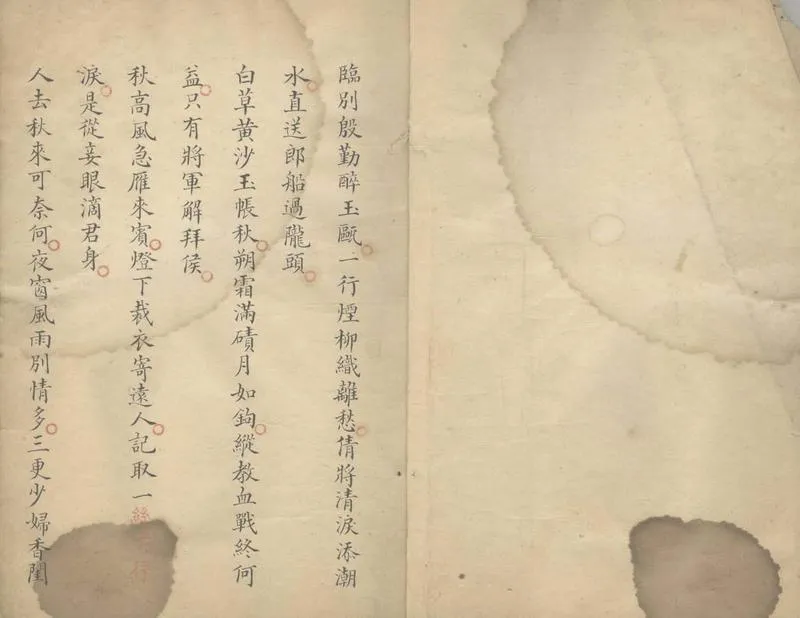 臨別殷勤醉玉甌一行煙柳織離愁倩將清淚添潮
水直送郎船過隴頭
白草黃沙玉帳秋朔霜滿磧月如鉤縱教血戰終何
益只有將軍解拜侯
秋高風急雁來賓燈下裁衣寄遠人記取一絲
淚是從妾眼滴君身
人去秋來可奈何夜窗風雨別情多三更少婦香閨